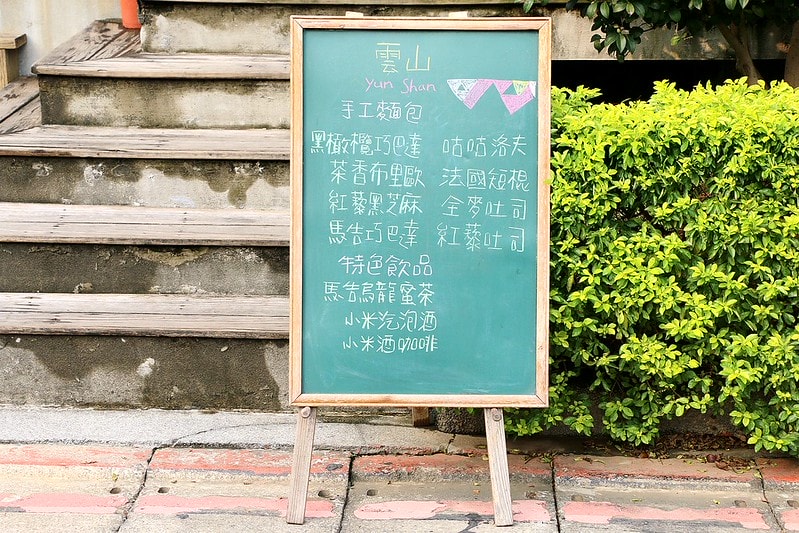 雲山
Yun Shan
手工麵包
黑橄欖巧巴達 咕咕洛夫
茶香布里歐 法國短棍
紅藜黑芝麻 全麥吐司
馬告巧巴達 紅藜吐司
特色飲品
馬告烏龍蜜茶
小米汽泡酒
小米酒咖啡